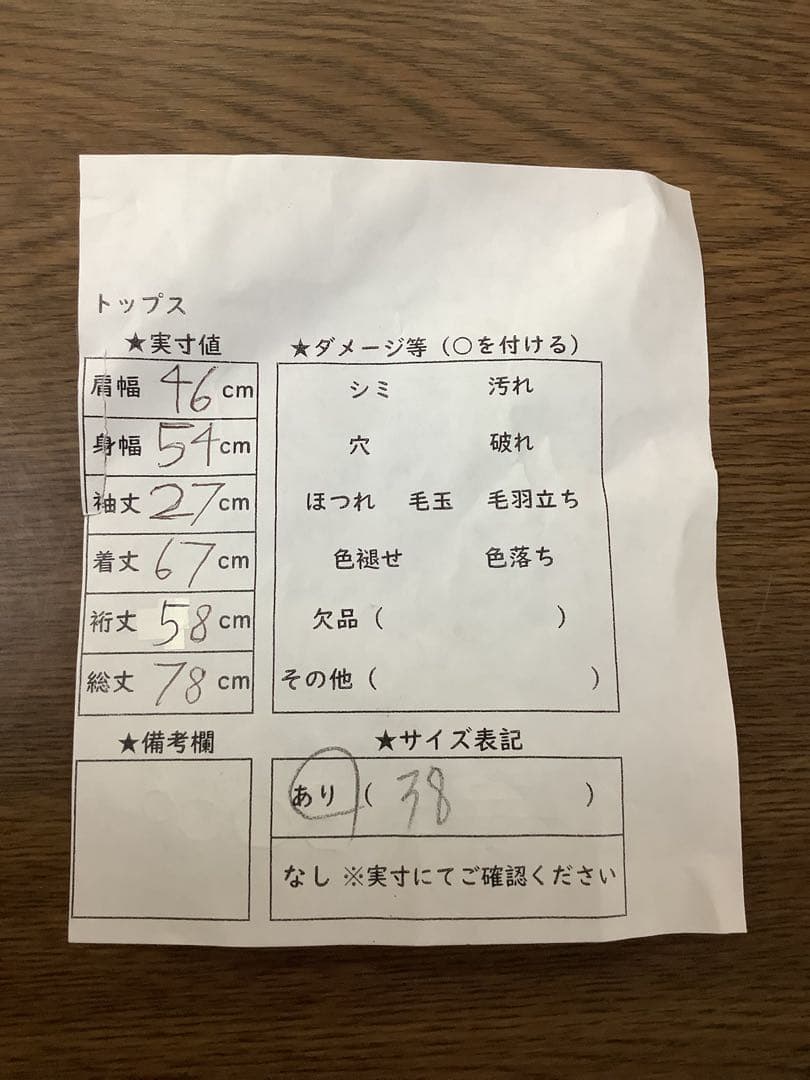 トップス
★実寸値
肩幅 46 cm
身幅 54 cm
袖丈 27 cm
着丈 67 cm
裄丈 58 cm
総丈 78 cm
★ダメージ等（○を付ける）
シミ 汚れ
穴 破れ
ほつれ 毛玉 毛羽立ち
色褪せ 色落ち
欠品（ ）
その他（ ）
★備考欄
★サイズ表記
あり（ 38 ）
なし ※実寸にてご確認ください